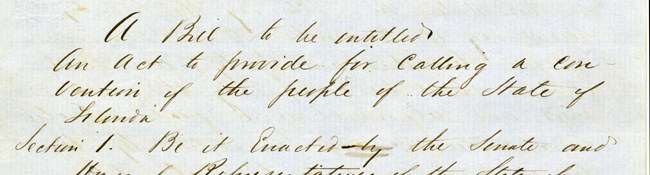 A Bill to be entitled
An Act to provide for Calling a con-
vention of the people of the State of
Florida
Section 1. Be it Enacted by the Senate and
House of Representatives of the State of